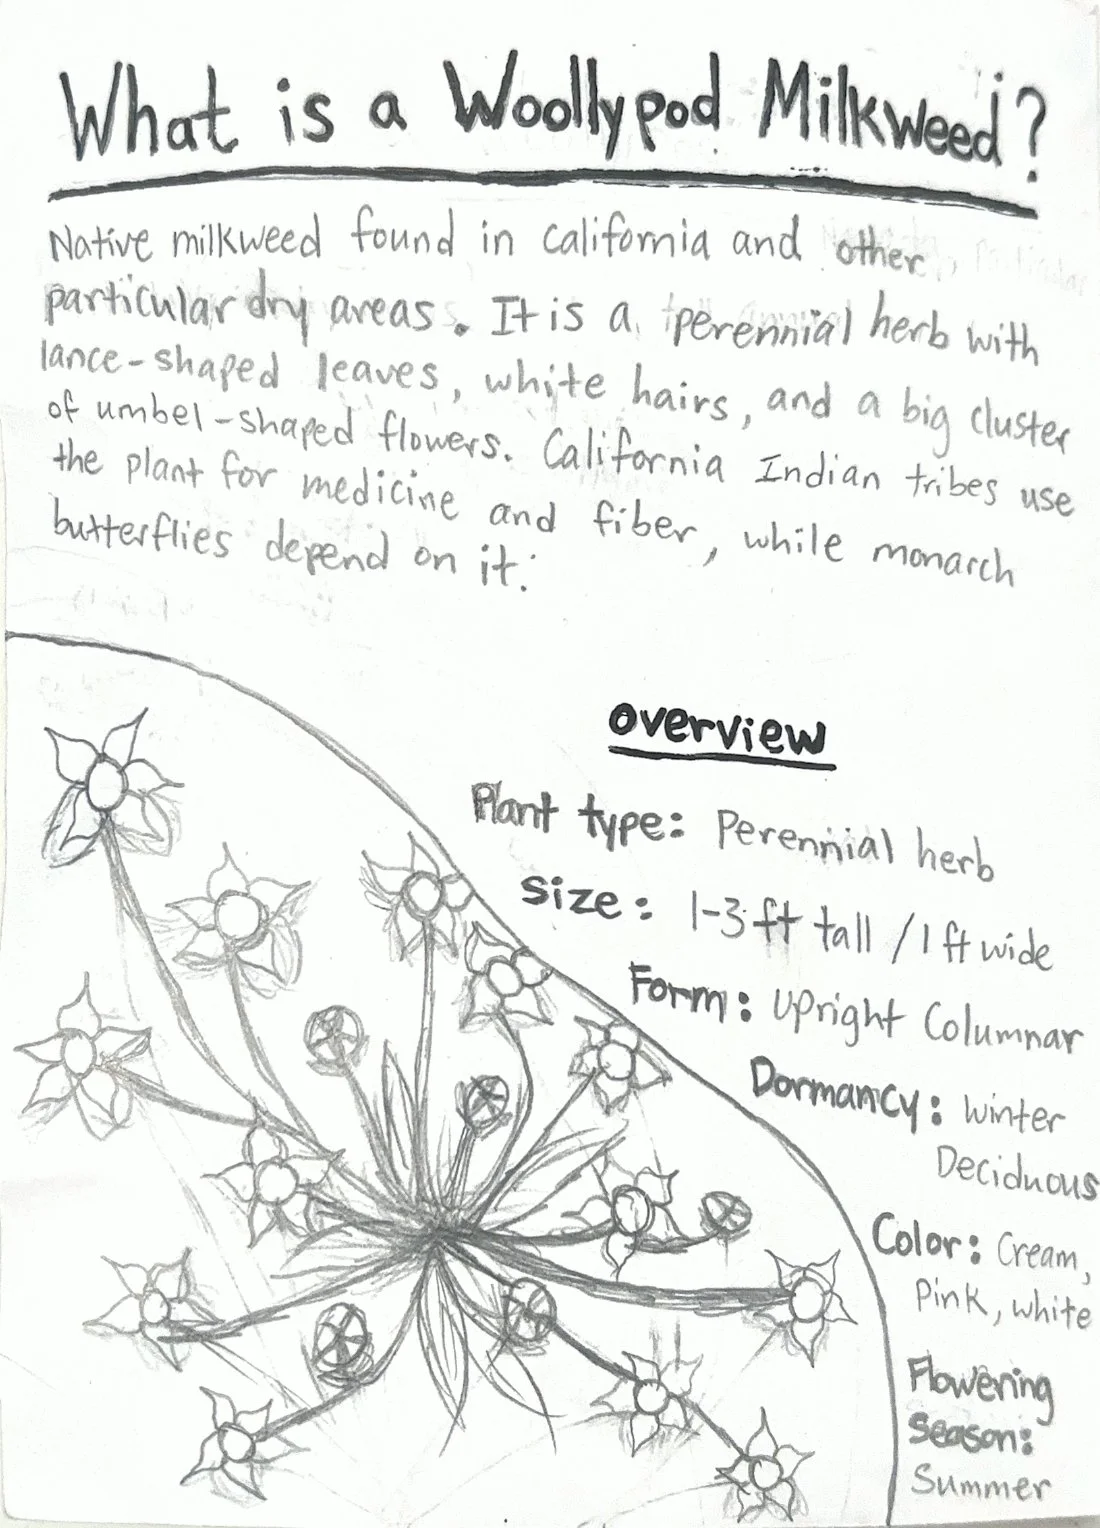 What is a Woollypod Milkweed?
Native milkweed found in California and other
particular dry areas. It is a perennial herb with
lance-shaped leaves, white hairs, and a big cluster
of umbel-shaped flowers. California Indian tribes use
the plant for medicine and fiber, while monarch
butterflies depend on it.
overview
Plant type: Perennial herb
Size: 1-3 ft tall / 1 ft wide
Form: Upright Columnar
Dormancy: Winter
Deciduous
Color: Cream,
Pink, white
Flowering
Season:
Summer